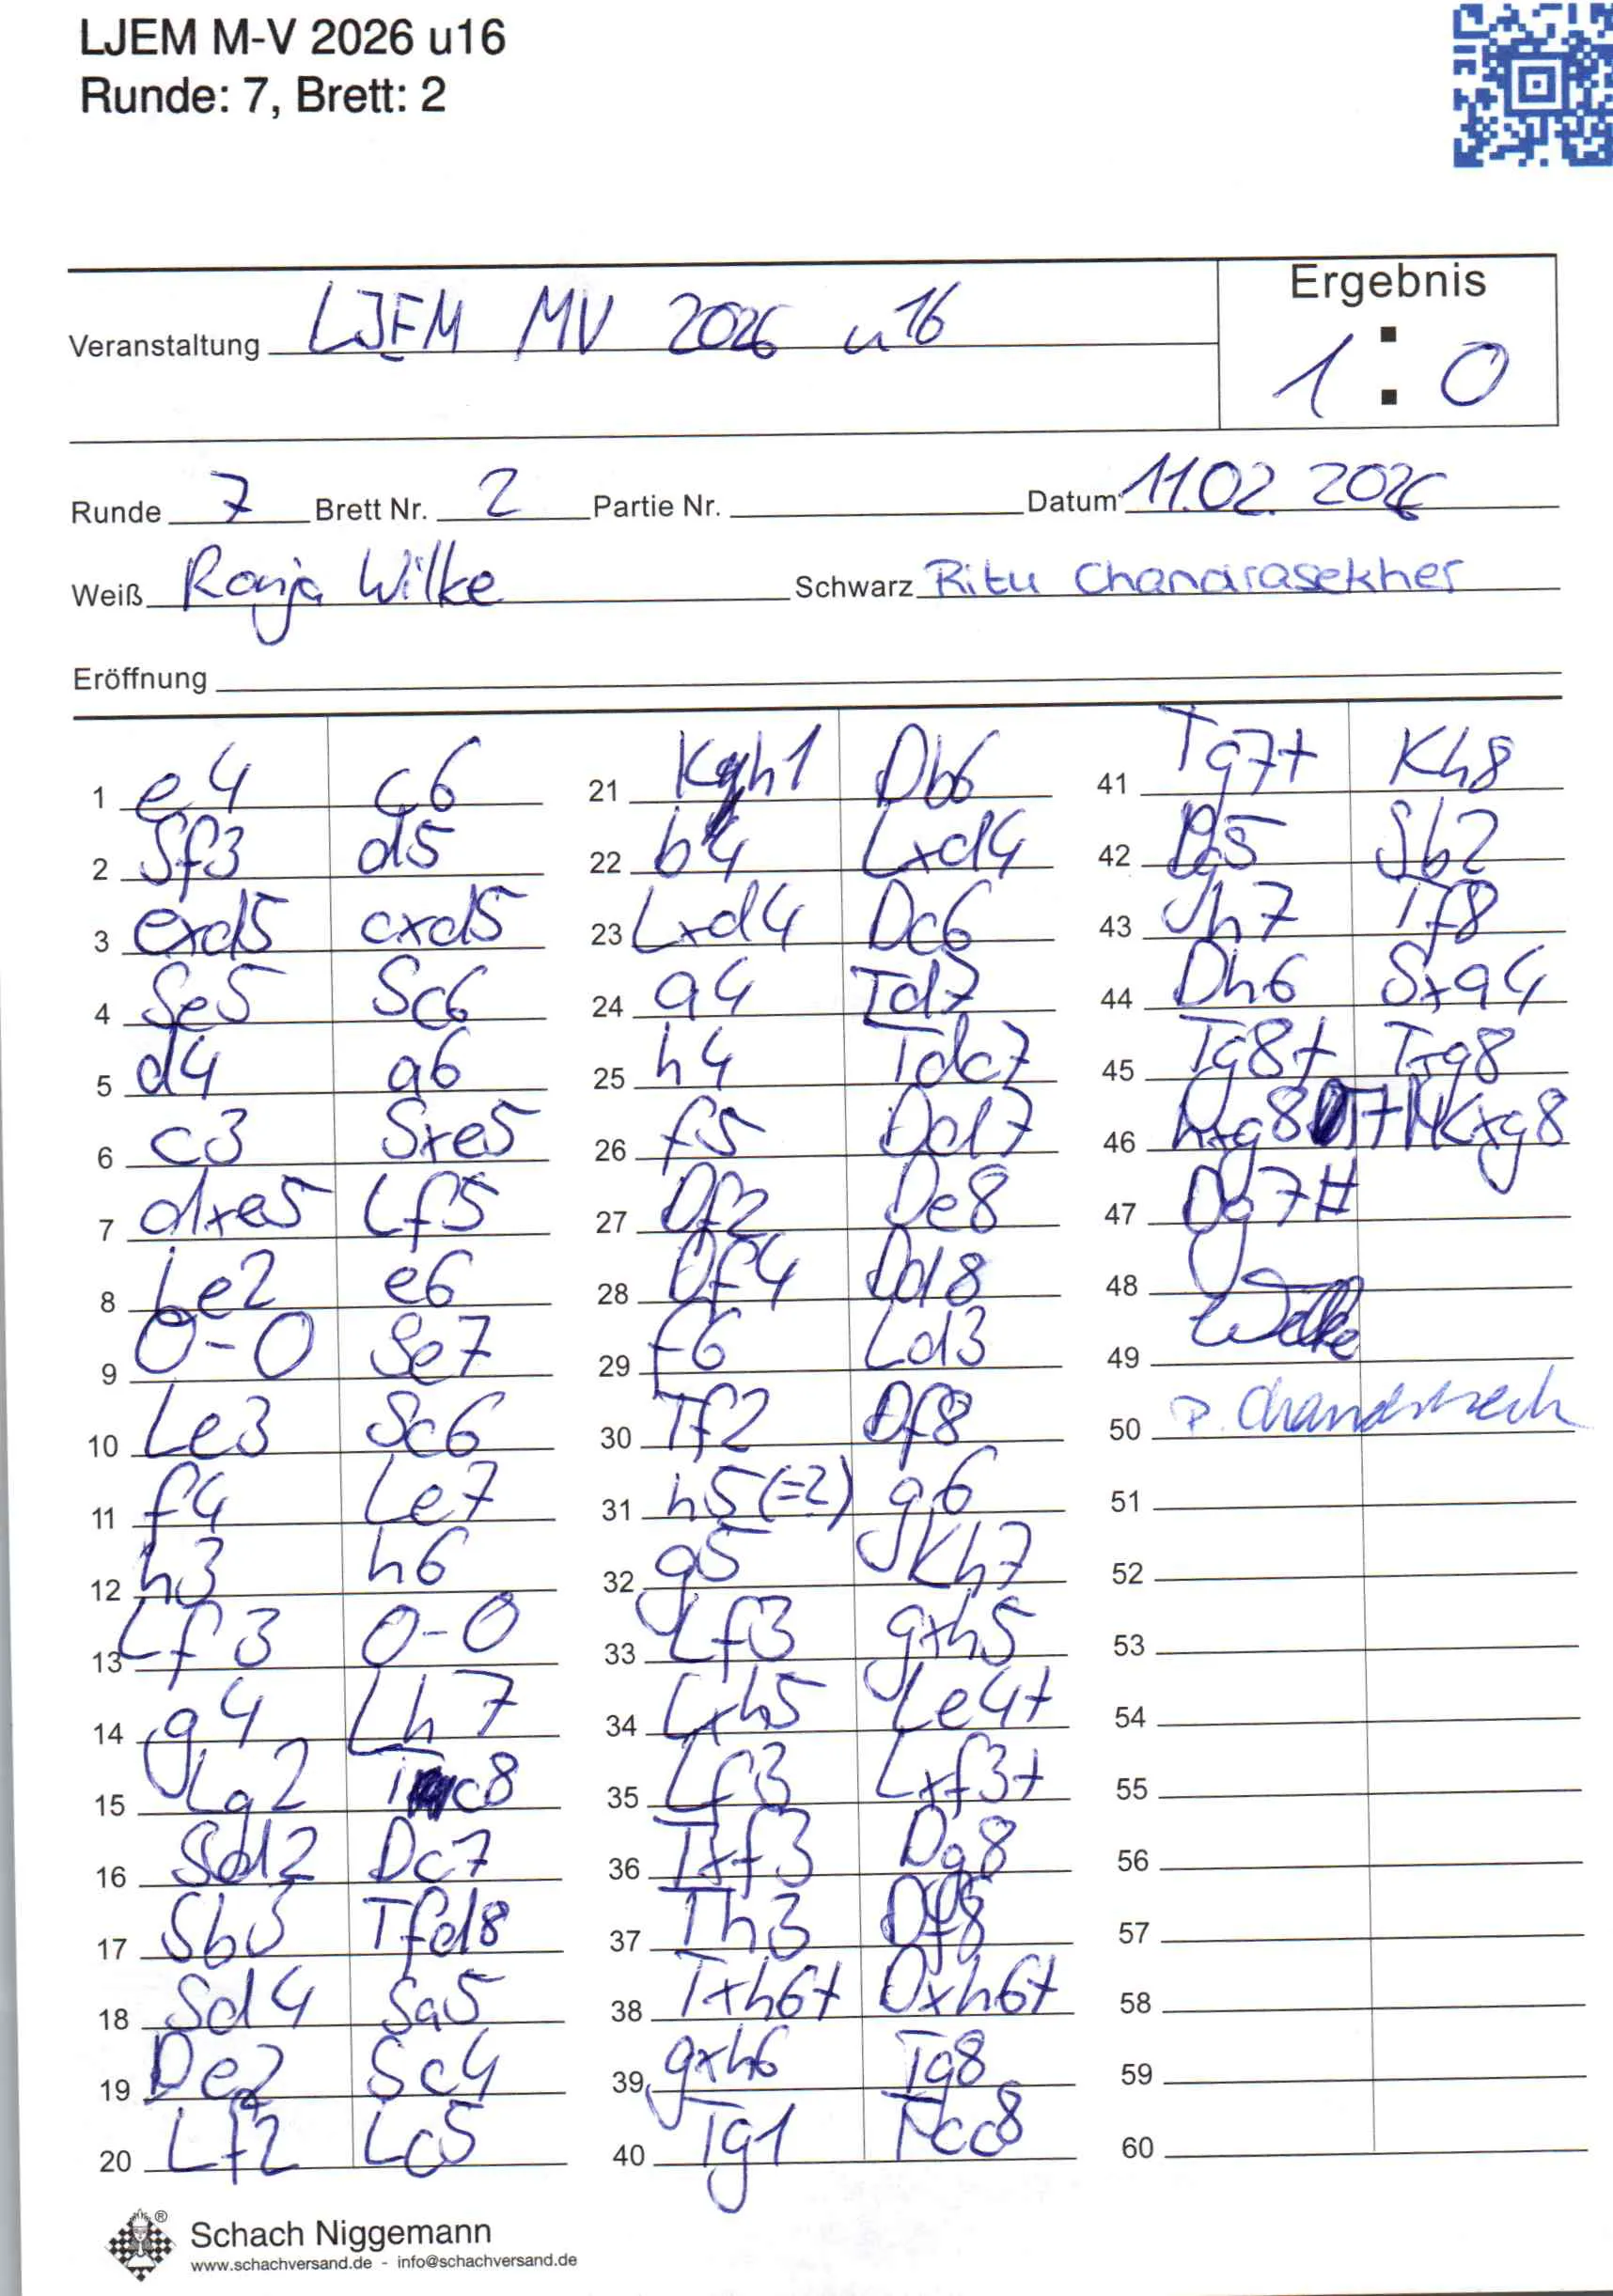 LJEM M-V 2026 u16
Runde: 7, Brett: 2
Ergebnis
Veranstaltung LJEM MV 2026 u16
1 : 0
Runde 7 Brett Nr. 2 Partie Nr. Datum 11.02.2026
Weiß Ronja Wilke Schwarz Ritu Chandrasekher
Eröffnung
1 e4 c6
2 Sf3 d5
3 exd5 cxd5
4 Se5 Sc6
5 d4 a6
6 c3 Sxe5
7 dxe5 Lf5
8 Le2 e6
9 0-0 Se7
10 Le3 Sc6
11 f4 Le7
12 h3 h6
13 Lf3 0-0
14 g4 Lh7
15 Lg2 Tc8
16 Sd2 Dc7
17 Sb3 Tfd8
18 Sd4 Sa5
19 De2 Sc4
20 Lf2 Lc5
21 Kh1 Db6
22 b4 Lxd4
23 Lxd4 Dc6
24 a4 Td7
25 h4 Tdc7
26 f5 Dd7
27 Df2 De8
28 Df4 Dd8
29 f6 Ld3
30 Tf2 Df8
31 h5(=?) g6
32 g5 Kh7
33 Lf3 gxh5
34 Lxh5 Le4+
35 Lf3 Lxf3+
36 Txf3 Dg8
37 Th3 Df8
38 Txh6+ Dxh6+
39 gxh6 Tg8
40 Tg1 Tcc8
41 Tg7+ Kh8
42 Dg5 Sb2
43 Th7 Tf8
44 Dh6 Sxa4
45 Tg8+ Txg8
46 hxg8D+ Kxg8
47 Dg7#
48
49 Wilke
50
51
52
53
54
55
56
57
58
59
60
Schach Niggemann
www.schachversand.de - info@schachversand.de